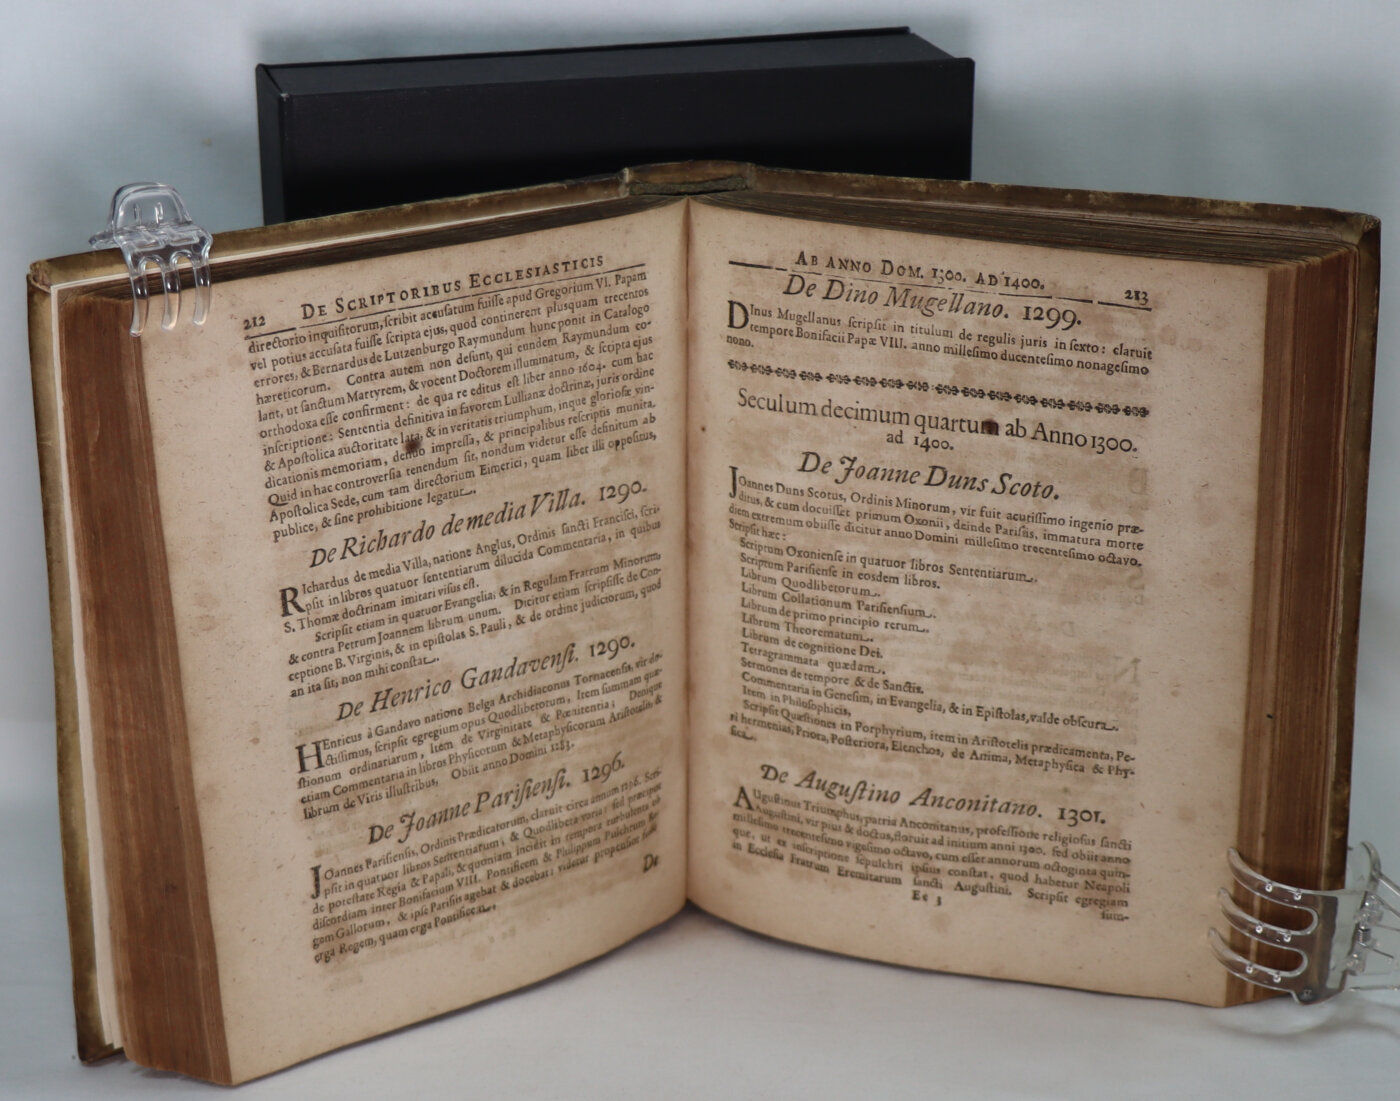 212 DE SCRIPTORIBUS ECCLESIASTICIS
directorio inquisitorum, scribit accusatum fuisse apud Gregorium VI. Papam
vel potius accusata fuisse scripta ejus, quod continerent plusquam trecentos
errores, & Bernardus de Lutzenburgo Raymundum hunc ponit in Catalogo
hæreticorum. Contra autem non desunt, qui eundem Raymundum co-
lant, ut sanctum Martyrem, & vocent Doctorem illuminatum, & scripta ejus
orthodoxa esse confirment: de qua re editus est liber anno 1604. cum hac
inscriptione: Sententia definitiva in favorem Lullianæ doctrinæ, juris ordine
& Apostolica auctoritate lata, & in veritatis triumphum, inque gloriosæ vin-
dicationis memoriam, denuo impressa, & principalibus rescriptis munita.
Quid in hac controversia tenendum sit, nondum videtur esse definitum ab
Apostolica Sede, cum tam directorium Eimerici, quam liber illi oppositus,
publice, & sine prohibitione legatur.
De Richardo de media Villa. 1290.
RIchardus de media Villa, natione Anglus, Ordinis sancti Francisci, scri-
psit in libros quatuor sententiarum dilucida Commentaria, in quibus
S. Thomæ doctrinam imitari visus est.
Scripsit etiam in quatuor Evangelia, & in Regulam Fratrum Minorum,
& contra Petrum Joannem librum unum. Dicitur etiam scripsisse de Con-
ceptione B. Virginis, & in epistolas S. Pauli, & de ordine judiciorum, quod
an ita sit, non mihi constat.
De Henrico Gandavensi. 1290.
HEnricus à Gandavo natione Belga Archidiaconus Tornacensis, vir do-
ctissimus, scripsit egregium opus Quodlibetorum, Item summam quæ-
stionum ordinariarum, Item de Virginitate & Pœnitentia; Denique
etiam Commentaria in libros Physicorum & Metaphysicorum Aristotelis, &
librum de Viris illustribus, Obiit anno Domini 1283.
De Joanne Parisiensi. 1296.
JOannes Parisiensis, Ordinis Prædicatorum, claruit circa annum 1296. Scri-
psit in quatuor libros Sententiarum, & Quodlibeta varia: sed præcipue
de potestate Regia & Papali, & quoniam incidit in tempora turbulenta ob
discordiam inter Bonifacium VIII. Pontificem & Philippum Pulchrum Re-
gem Gallorum, & ipse Parisiis agebat & docebat: videtur propensior fuisse
erga Regem, quam erga Pontificem.
De
AB ANNO DOM. 1300. AD 1400. 213
De Dino Mugellano. 1299.
DInus Mugellanus scripsit in titulum de regulis juris in sexto: claruit
tempore Bonifacii Papæ VIII. anno millesimo ducentesimo nonagesimo
nono.
Seculum decimum quartum ab Anno 1300.
ad 1400.
De Joanne Duns Scoto.
JOannes Duns Scotus, Ordinis Minorum, vir fuit acutissimo ingenio præ-
ditus, & cum docuisset primum Oxonii, deinde Parisiis, immatura morte
diem extremum obiisse dicitur anno Domini millesimo trecentesimo octavo.
Scripsit hæc:
Scriptum Oxoniense in quatuor libros Sententiarum.
Scriptum Parisiense in eosdem libros.
Librum Quodlibetorum.
Librum Collationum Parisiensium.
Librum de primo principio rerum.
Librum Theorematum.
Librum de cognitione Dei.
Tetragrammata quædam.
Sermones de tempore & de Sanctis.
Commentaria in Genesim, in Evangelia, & in Epistolas, valde obscura.
Item in Philosophicis,
Scripsit Quæstiones in Porphyrium, item in Aristotelis prædicamenta, Pe-
ri hermenias, Priora, Posteriora, Elenchos, de Anima, Metaphysica & Phy-
sica.
De Augustino Anconitano. 1301.
AUgustinus Triumphus, patria Anconitanus, professione religiosus sancti
Augustini, vir pius & doctus, floruit ad initium anni 1300. sed obiit anno
millesimo trecentesimo vigesimo octavo, cum esset annorum octoginta quin-
que, ut ex inscriptione sepulchri ipsius constat, quod habetur Neapoli
in Ecclesia Fratrum Eremitarum sancti Augustini. Scripsit egregiam
Ee 3 sum-